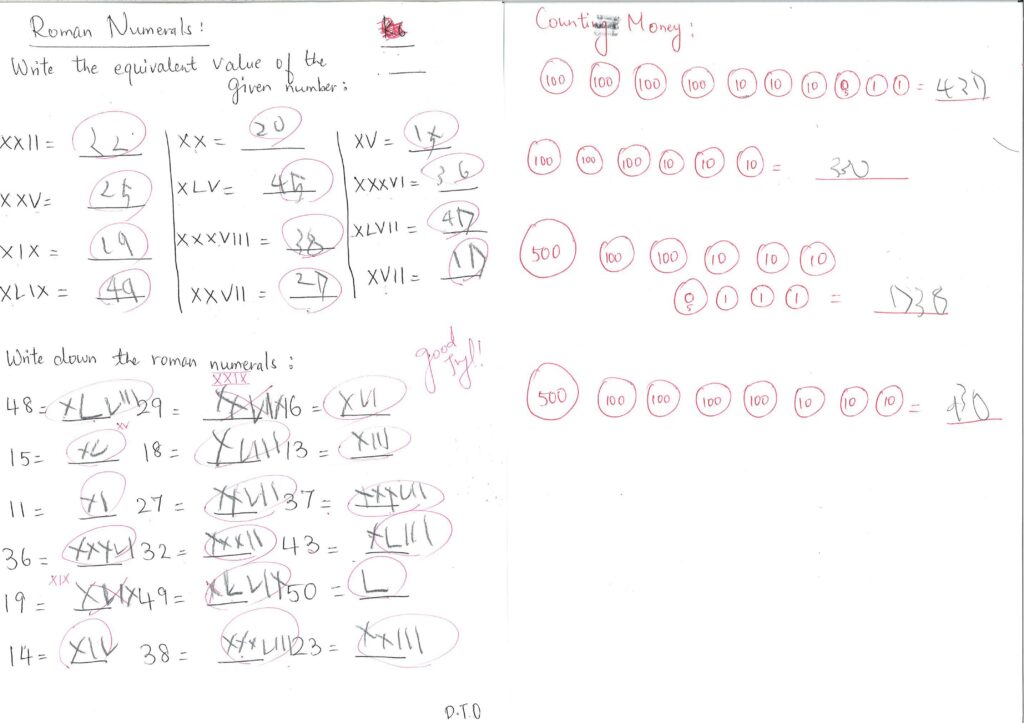 Roman Numerals:
Write the equivalent value of the
given number:
XXII = 22 XX = 20 XV = 15
XXV = 25 XLV = 45 XXXVI = 36
XIX = 19 XXXVIII = 38 XLVII = 47
XLIX = 49 XXVII = 27 XVII = 17
Write down the roman numerals:
good
Try!!
XXIX
48 = XLVIII 29 = XXVIX 16 = XVI
XV
15 = 18 = XVIII 13 = XIII
11 = XI 27 = XXVII 37 = XXXVII
36 = XXXVI 32 = XXXII 43 = XLIII
XIX
19 = XVIX 49 = XLVIX 50 = L
14 = XIV 38 = XXXVIII 23 = XXIII
D.T.O
Counting Money:
100 100 100 100 10 10 10 5 1 1 = 437
100 100 100 10 10 10 = 330
500 100 100 10 10 10
5 1 1 1 = 1738
500 100 100 100 100 10 10 10 =